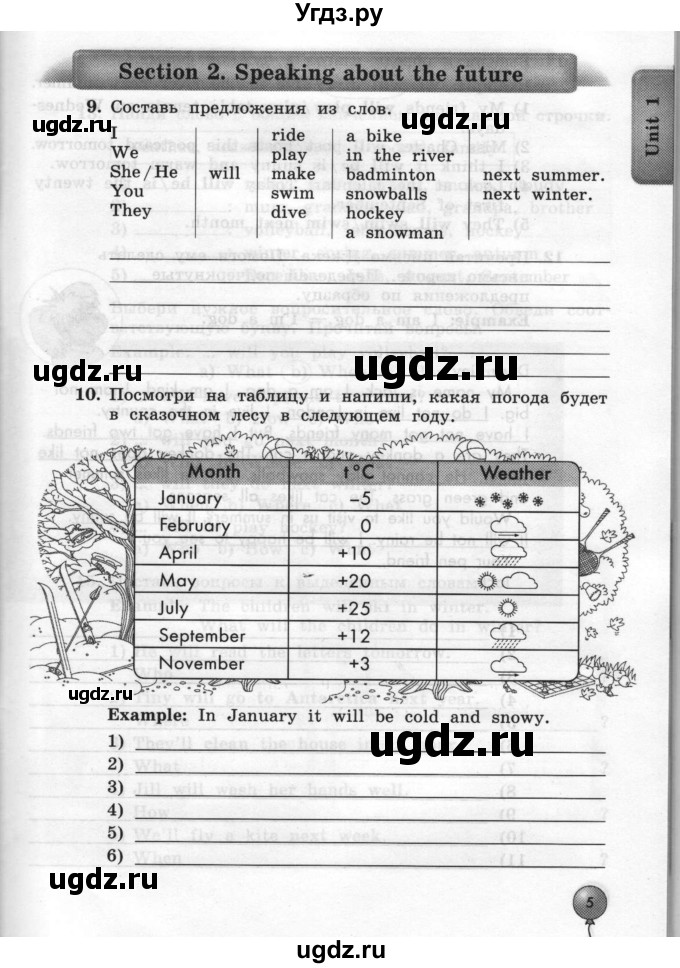 Угдз.ру
Section 2. Speaking about the future
Unit 1
9. Составь предложения из слов.
ugdz.ru ugdz.ru
I ride a bike
We play in the river
She/He will make badminton next summer.
You swim snowballs next winter.
They dive hockey
a snowman
ugdz.ru ugdz.ru
10. Посмотри на таблицу и напиши, какая погода будет
в сказочном лесу в следующем году.
Month t°C Weather
January –5
February –2
April +10
May +20
July +25
September +12
November +3
ugdz.ru
Example: In January it will be cold and snowy.
ugdz.ru
1)
2)
3)
4)
5)
6)
ugdz.ru
5
ugdz.ru